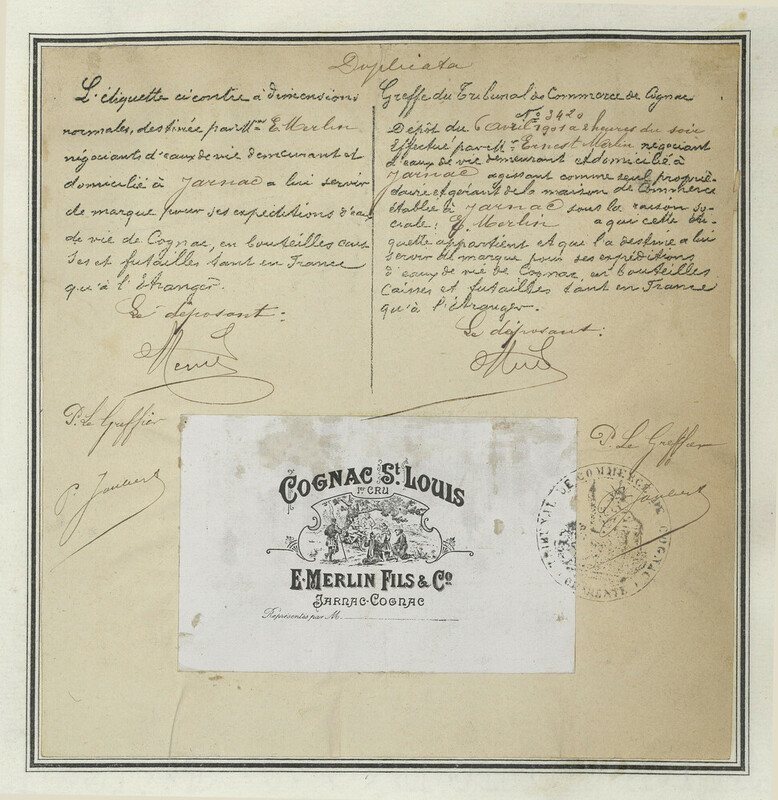 Duplicata
L'étiquette ci contre à dimensions
normales, destinée par Mr E. Merlin
négociants d'eaux de vie demeurant et
domicilié à Jarnac a lui servir
de marque pour ses expéditions d'eaux
de vie de Cognac, en bouteilles cais
ses et futailles tant en France
qu'à l'Etranger.
Le déposant:
P. Le Greffier
P. Joubert
Greffe du Tribunal de Commerce de Cognac
No 3420
Dépôt du 6 avril 1901 a 2 heures du soir
Effectué par Mr Ernest Merlin négociant
d'eaux de vie demeurant et domicilié à
Jarnac agissant comme seul proprié-
taire et gérant de la maison de Commerce
établie à Jarnac sous la raison so-
ciale: E. Merlin a qui cette éti-
quette appartient et que l'a destiné a lui
servir de marque pour ses expéditions
d'eaux de vie de Cognac en bouteilles
Caisses et futailles tant en France
qu'à l'étranger.
Le déposant:
P. Le Greffier
Joubert
TRIBUNAL DE COMMERCE DE COGNAC
CHARENTE
COGNAC ST. LOUIS
1ER CRU
E. MERLIN FILS & CO
JARNAC-COGNAC
Représentés par M.